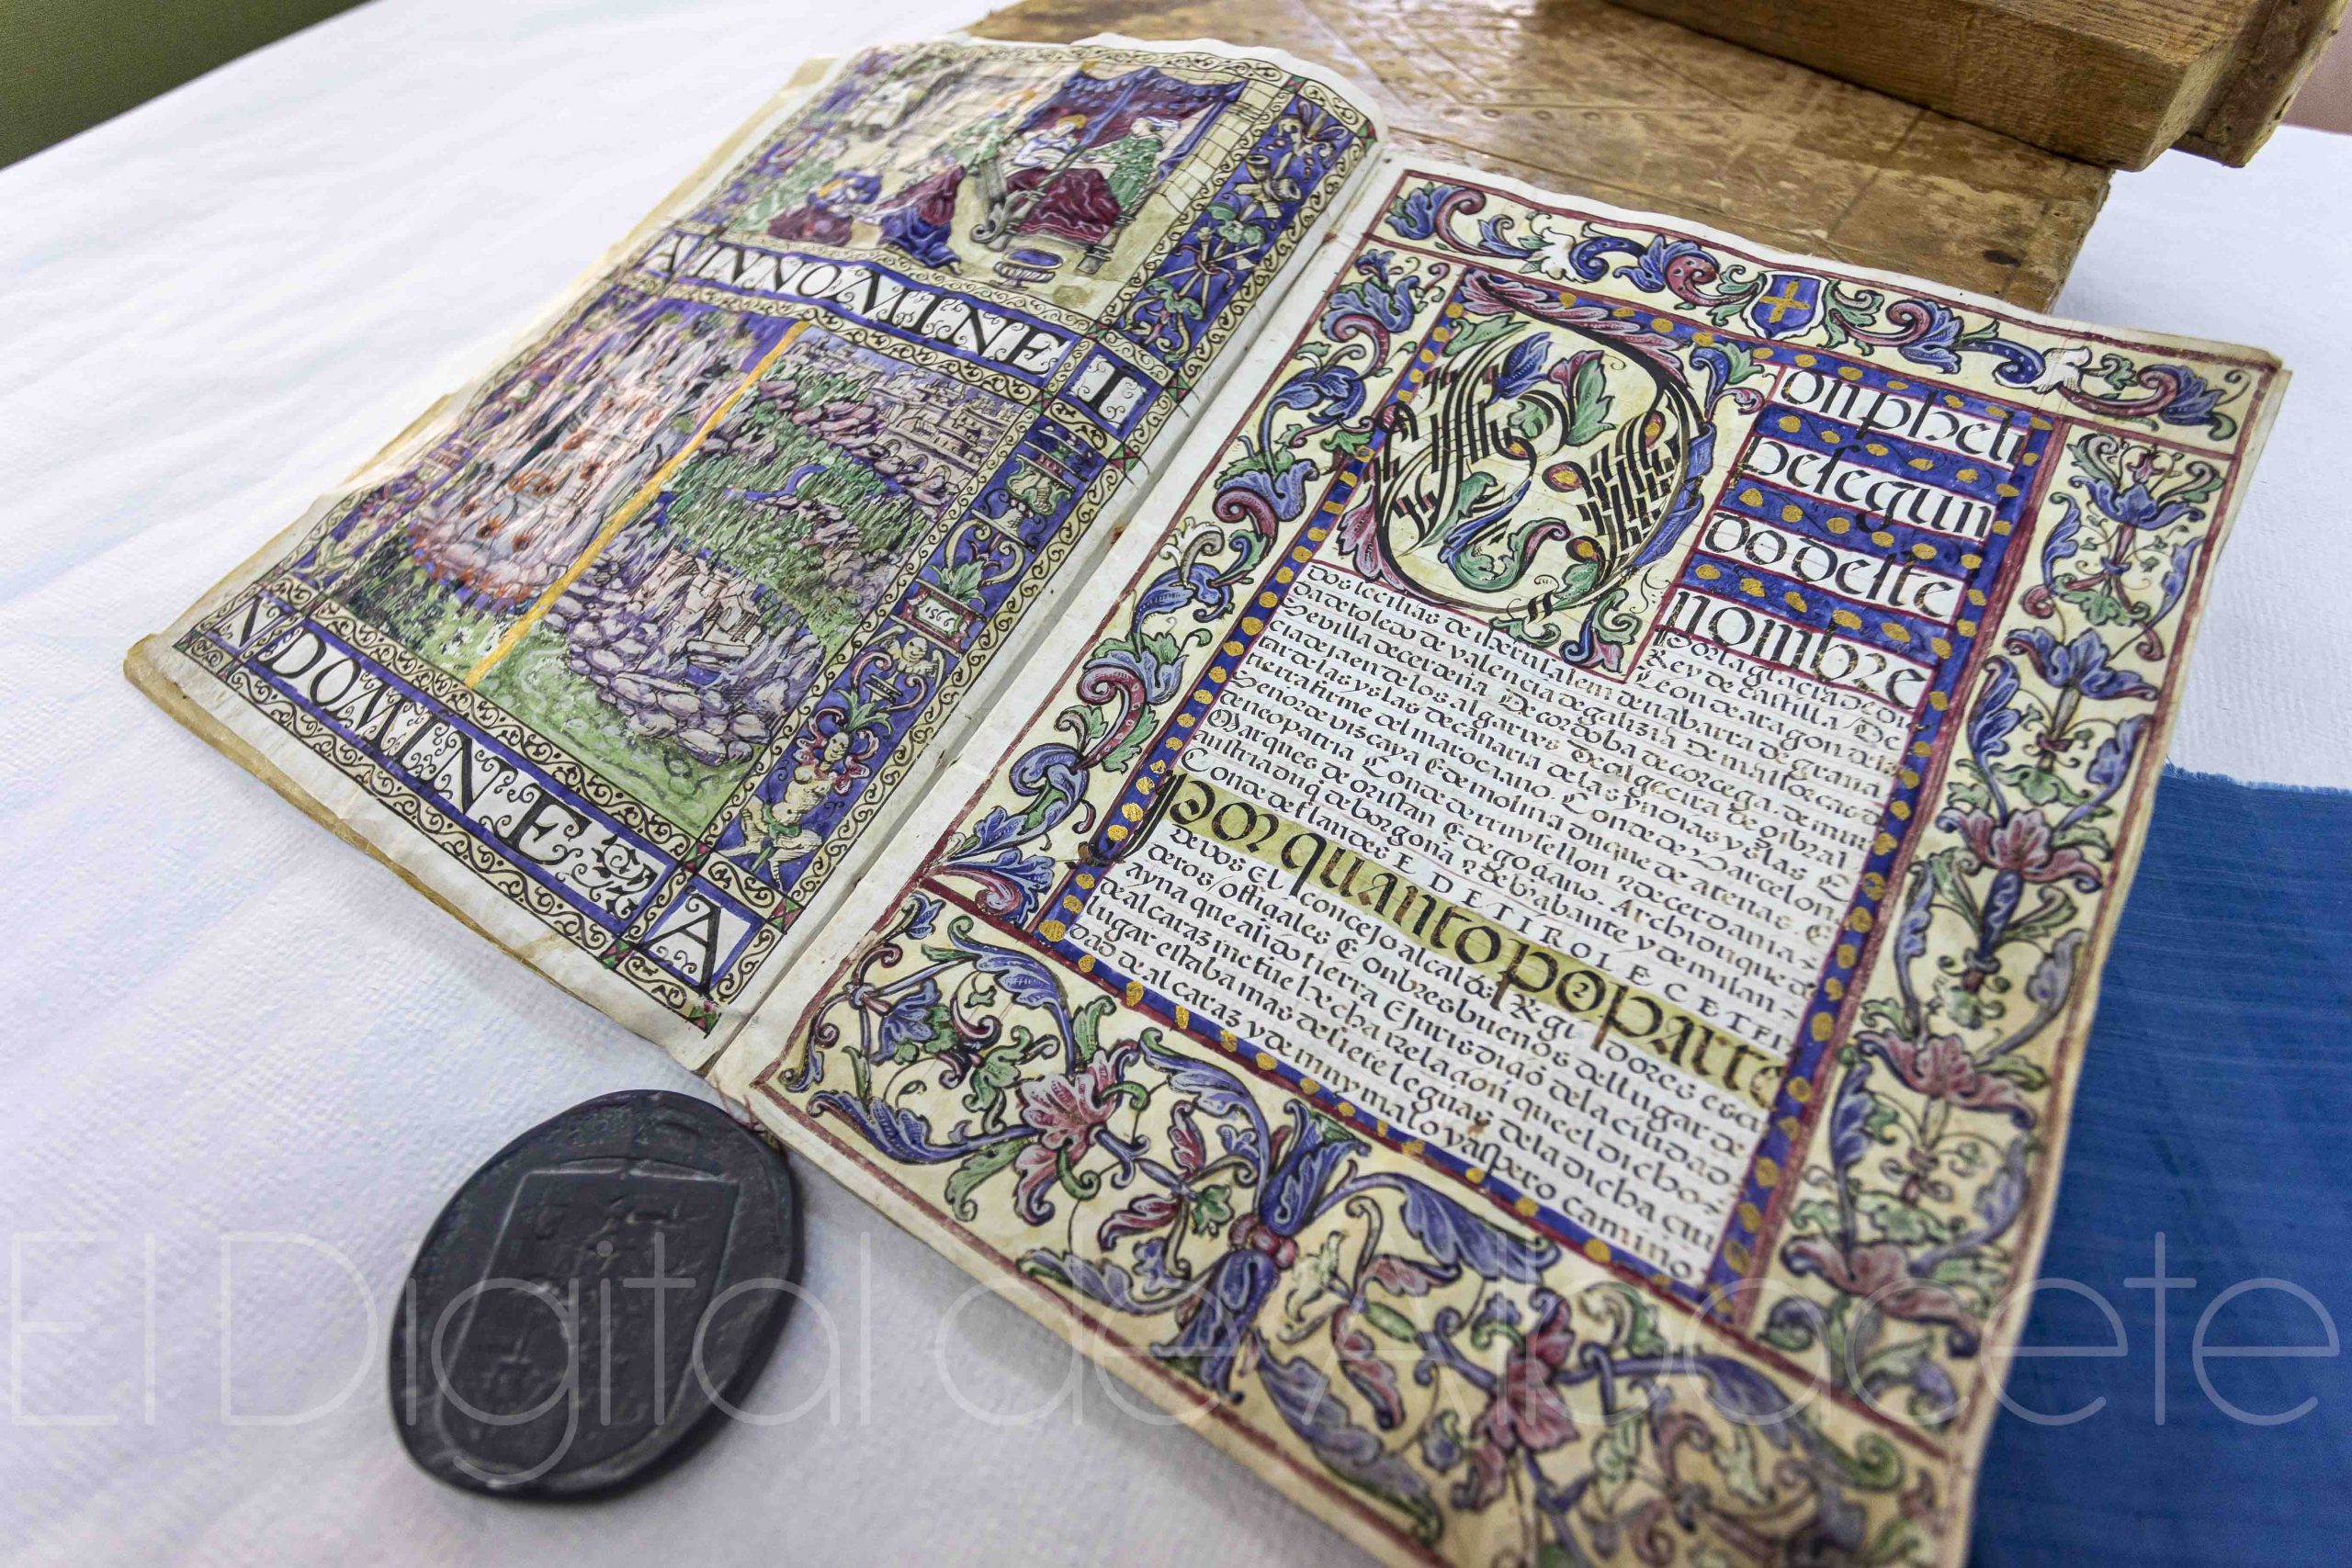 A INNOMINE I
1566
N DOMINE A
Don pheli
pe segun
do deste
nombre
por la gracia de di
Rey de castilla / de
Leon de aragon de las
dos secilias de iherusalem de nabarra de grana
da de toledo de valencia de galizia de mallorcas de
Sevilla de cerdeña De cordoba de corcega, de mur
cia de jaen de los algarves De algecira de gibral
tar de las yslas de canaria de las yndias yslas E
tierra firme del mar oceano, Conde de Barcelona
Señor de vizcaya E de molina duque de atenas E
de neopatria Conde de ruysellon y de cerdania
Marques de oristan E de goçiano, Archiduque de
austria duq de borgoña y de brabante y de milan
Conde de flandes E DE TIROL ECETE
por quanto por parte
de vos El concejo alcaldes Regidores escu
deros / offiçiales E onbres buenos del lugar de
ayna que a sido tierra E jurisdiçió de la ciudad
de alcaraz me fue fecha Relaçion que el dicho
lugar estaba mas de siete leguas de la dicha ciu
dad de alcaraz y de muy malo y aspero camino
El Digital de Albacete